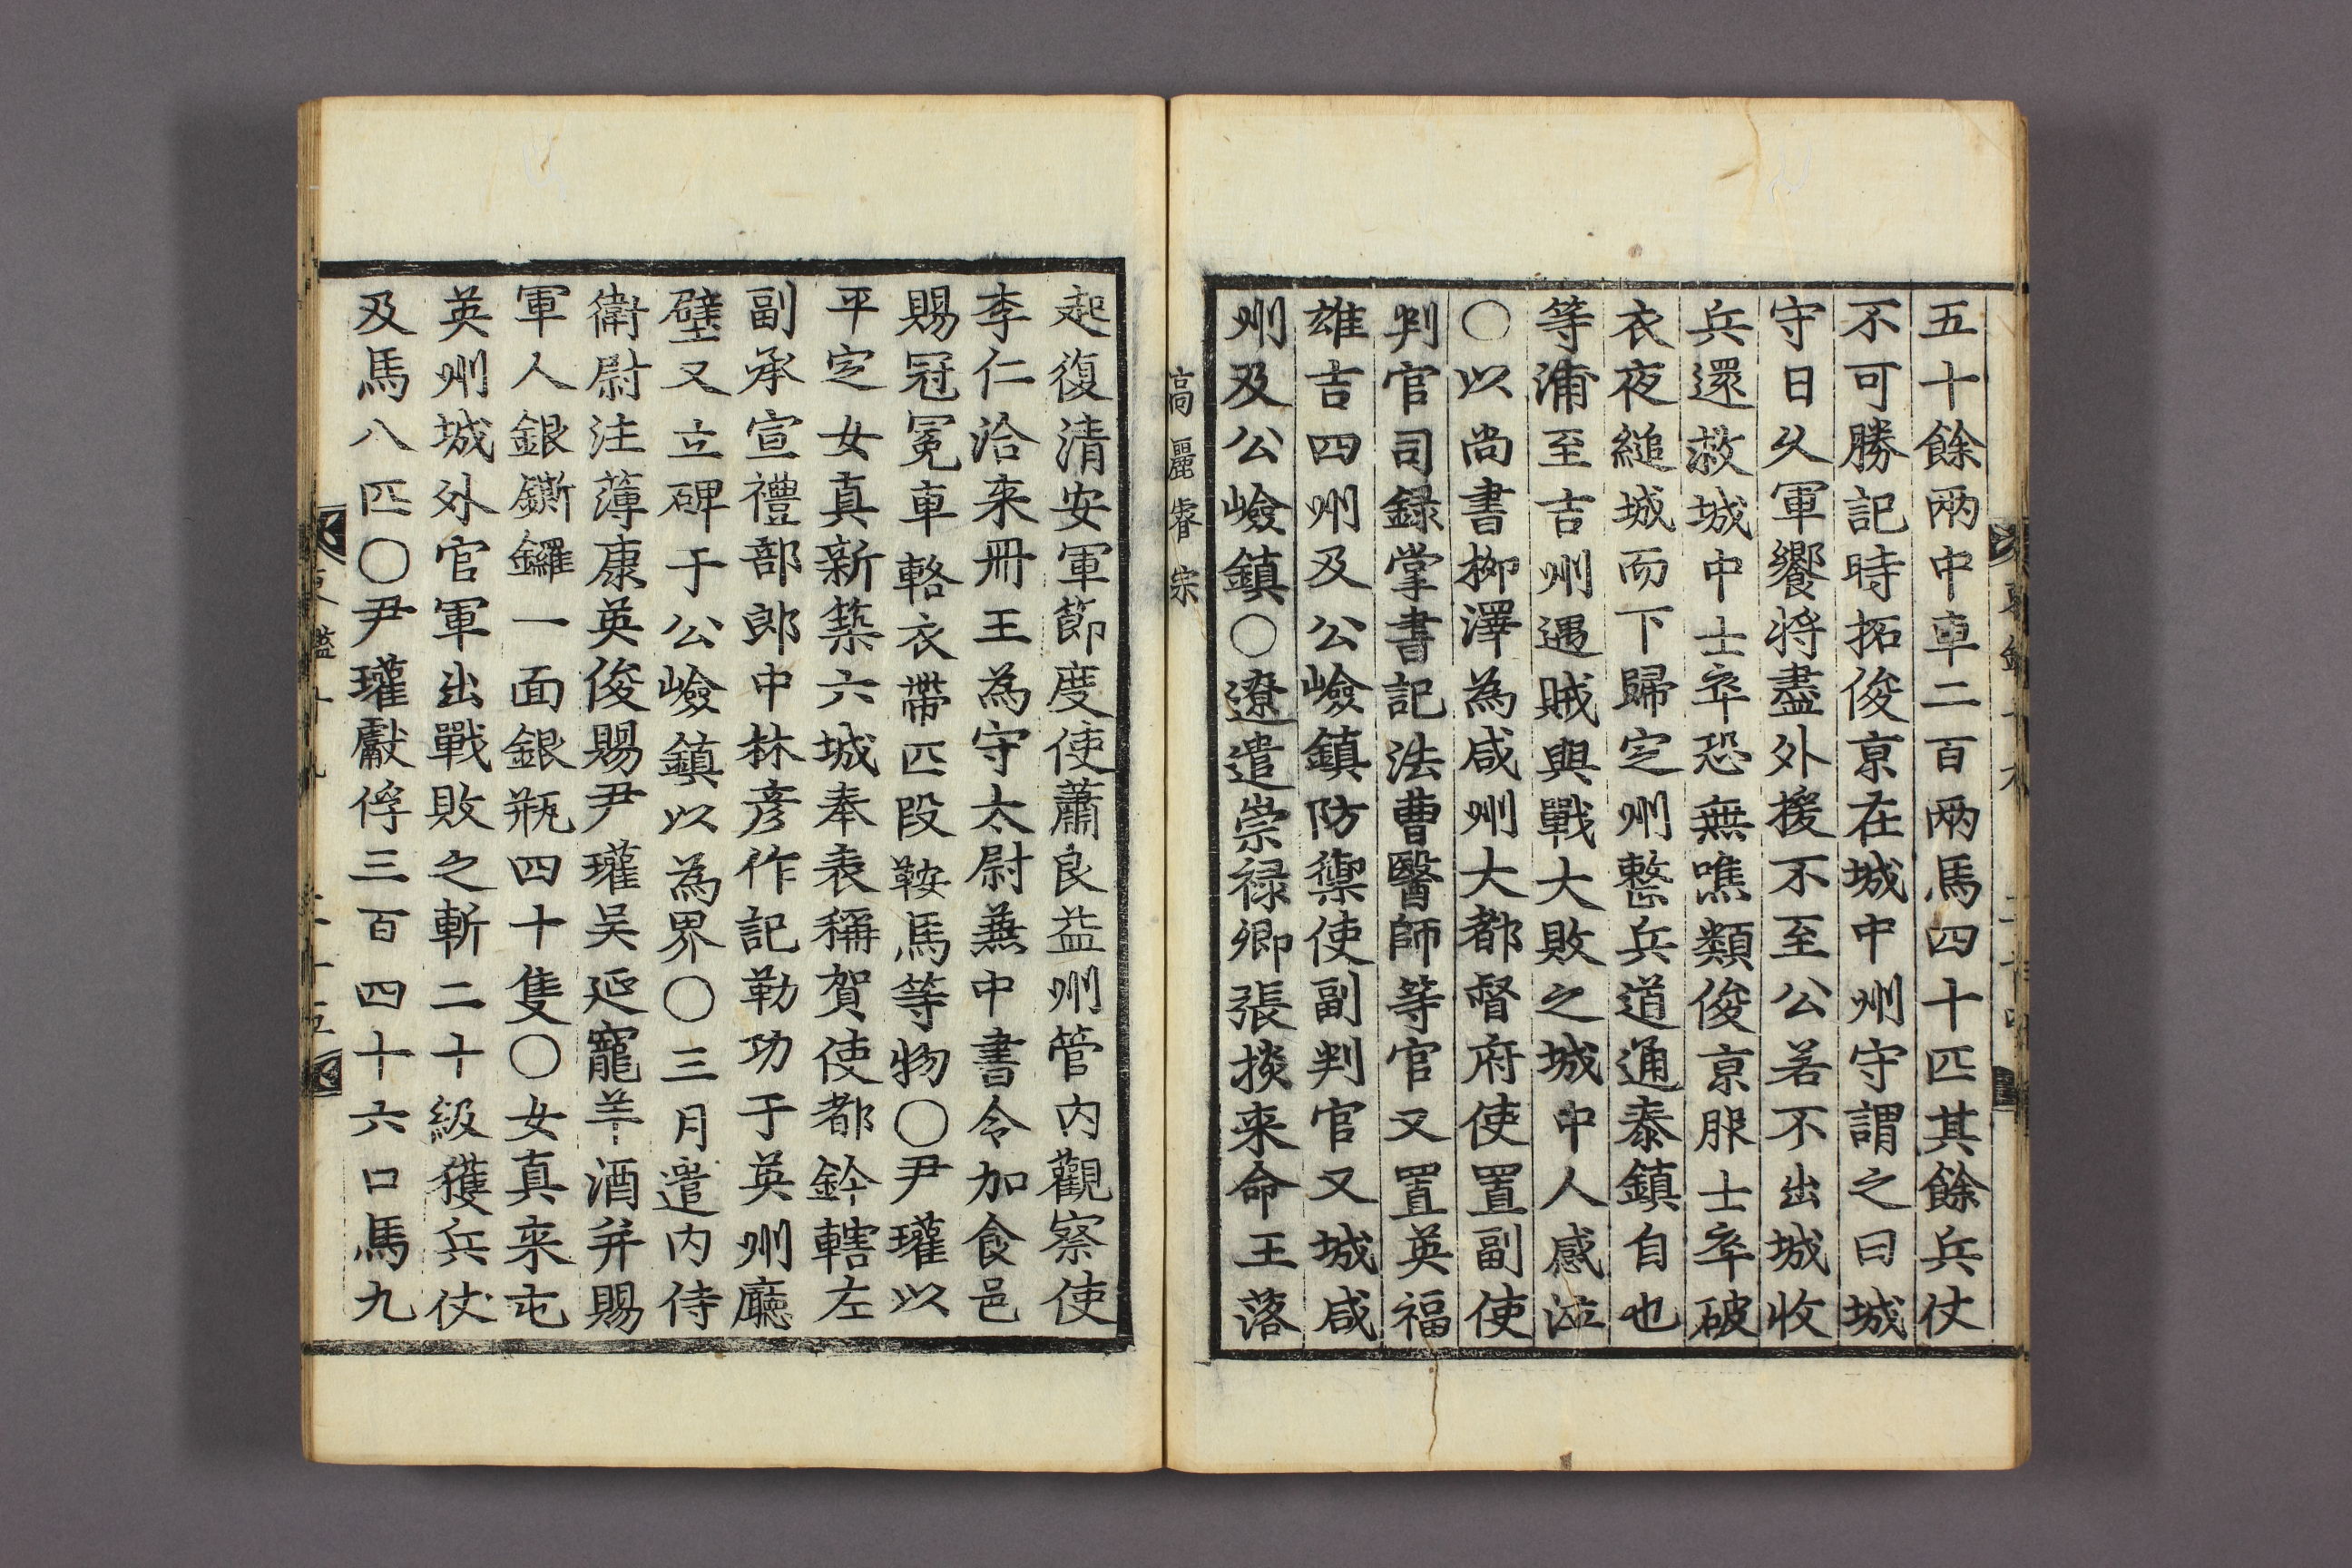 五十餘兩中車二百兩馬四十匹其餘兵仗
不可勝記時拓俊京在城中州守謂之曰城
守日久軍饗將盡外援不至公若不出城收
兵還救城中士卒恐無噍類俊京服士卒破
衣夜縋城而下歸定州整兵道通泰鎮自也
等浦至吉州遇賊與戰大敗之城中人感泣
○以尚書柳澤為咸州大都督府使置副使
判官司錄掌書記法曹醫師等官又置英福
雄吉四州及公嶮鎮防禦使副判官又城咸
州及公嶮鎮○遼遣崇祿卿張掞来命王落
高麗睿宗
起復清安軍節度使蕭良益州管内觀察使
李仁洽来冊王為守太尉兼中書令加食邑
賜冠冕車輅衣帶匹段鞍馬等物○尹瓘以
平定女真新築六城奉表稱賀使都鈐轄左
副承宣禮部郎中林彦作記勒功于英州廳
壁又立碑于公嶮鎮以為界○三月遣内侍
衛尉注薄康英俊賜尹瓘吴延寵羊酒并賜
軍人銀鐁鑼一面銀瓶四十隻○女真来屯
英州城外官軍出戰敗之斬二十級獲兵仗
及馬八匹○尹瓘獻俘三百四十六口馬九